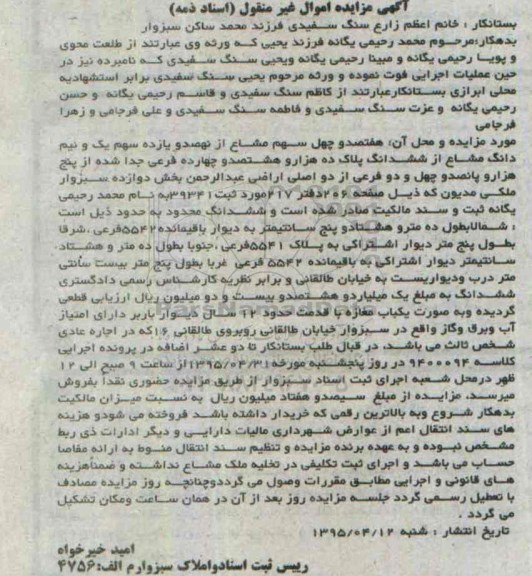 آگهی مزایده اموال غیر منقول (اسناد ذمه)
بستانکار : خانم اعظم زارع سنگ سفیدی فرزند محمد ساکن سبزوار
بدهکار:مرحوم محمد رحیمی یگانه فرزند یحیی که ورثه وی عبارتند از طلعت محوی
و پویا رحیمی یگانه و مبینا رحیمی یگانه ویحیی سنگ سفیدی که نامبرده نیز در
حین عملیات اجرایی فوت نموده و ورثه مرحوم یحیی سنگ سفیدی برابر استشهادیه
محلی ابرازی بستانکارعبارتند از کاظم سنگ سفیدی و قاسم رحیمی یگانه و حسن
رحیمی یگانه و عزت سنگ سفیدی و فاطمه سنگ سفیدی و علی فرجامی و زهرا
فرجامی
مورد مزایده و محل آن: هفتصدو چهل سهم مشاع از نهصدو یازده سهم یک و نیم
دانگ مشاع از ششدانگ پلاک ده هزارو هشتصدو چهارده فرعی جدا شده از پنج
هزارو پانصدو چهل و دو فرعی از دو اصلی اراضی عبدالرحمن بخش دوازده سبزوار
ملکی مدیون که ذیل صفحه ۲۰۶دفتر ۲۱۷مورد ثبت۳۹۳۴۱به نام محمد رحیمی
یگانه ثبت و سند مالکیت صادر شده است و ششدانگ محدود به حدود ذیل است
: شمالابطول ده مترو هشتادو پنج سانتیمتر به دیوار باقیمانده۵۵۴۲فرعی ،شرقا
بطول پنج متر دیوار اشتراکی به پلاک ۵۵۴۱فرعی ،جنوبا بطول ده متر و هشتاد
سانتیمتر دیوار اشتراکی به باقیمانده ۵۵۴۲ فرعی غربا بطول پنج متر بیست سانتی
متر درب ودیواریست به خیابان طالقانی و برابر نظریه کارشناس رسمی دادگستری
ششدانگ به مبلغ یک میلیاردو هشتصدو بیست و دو میلیون ریال ارزیابی قطعی
گردیده وبه صورت یکباب مغازه با قدمت حدود ۱۲ سال دیوار باربر دارای امتیاز
آب وبرق وگاز واقع در سبزوار خیابان طالقانی روبروی طالقانی ۱۶که در اجاره عادی
شخص ثالث می باشد، در قبال طلب بستانکار تا دو عشر اضافه در پرونده اجرایی
کلاسه ۹۴۰۰۰۹۴ در روز پنجشنبه مورخه۱۳۹۵/۰۴/۳۱از ساعت ۹ صبح الی ۱۲
ظهر درمحل شعبه اجرای ثبت اسناد سبزوار از طریق مزایده حضوری نقدا بفروش
میرسد. مزایده از مبلغ سیصدو هفتاد میلیون ریال به نسبت میزان مالکیت
بدهکار شروع وبه بالاترین رقمی که خریدار داشته باشد فروخته می شودو هزینه
های سند انتقال اعم از عوارض شهرداری مالیات دارایی و دیگر ادارات ذی ربط
مشخص نبوده و به عهده برنده مزایده و تنظیم سند انتقال منوط به ارائه مفاصا
حساب می باشد و اجرای ثبت تکلیفی در تخلیه ملک مشاع نداشته و ضمناهزینه
های قانونی و اجرایی مطابق مقررات وصول می گرددوچنانچه روز مزایده مصادف
با تعطیل رسمی گردد جلسه مزایده روز بعد از آن در همان ساعت ومکان تشکیل
می گردد .
تاریخ انتشار : شنبه ۱۳۹۵/۰۴/۱۲
امید خیرخواه
رییس ثبت اسنادواملاک سبزوارم الف:۴۷۵۶